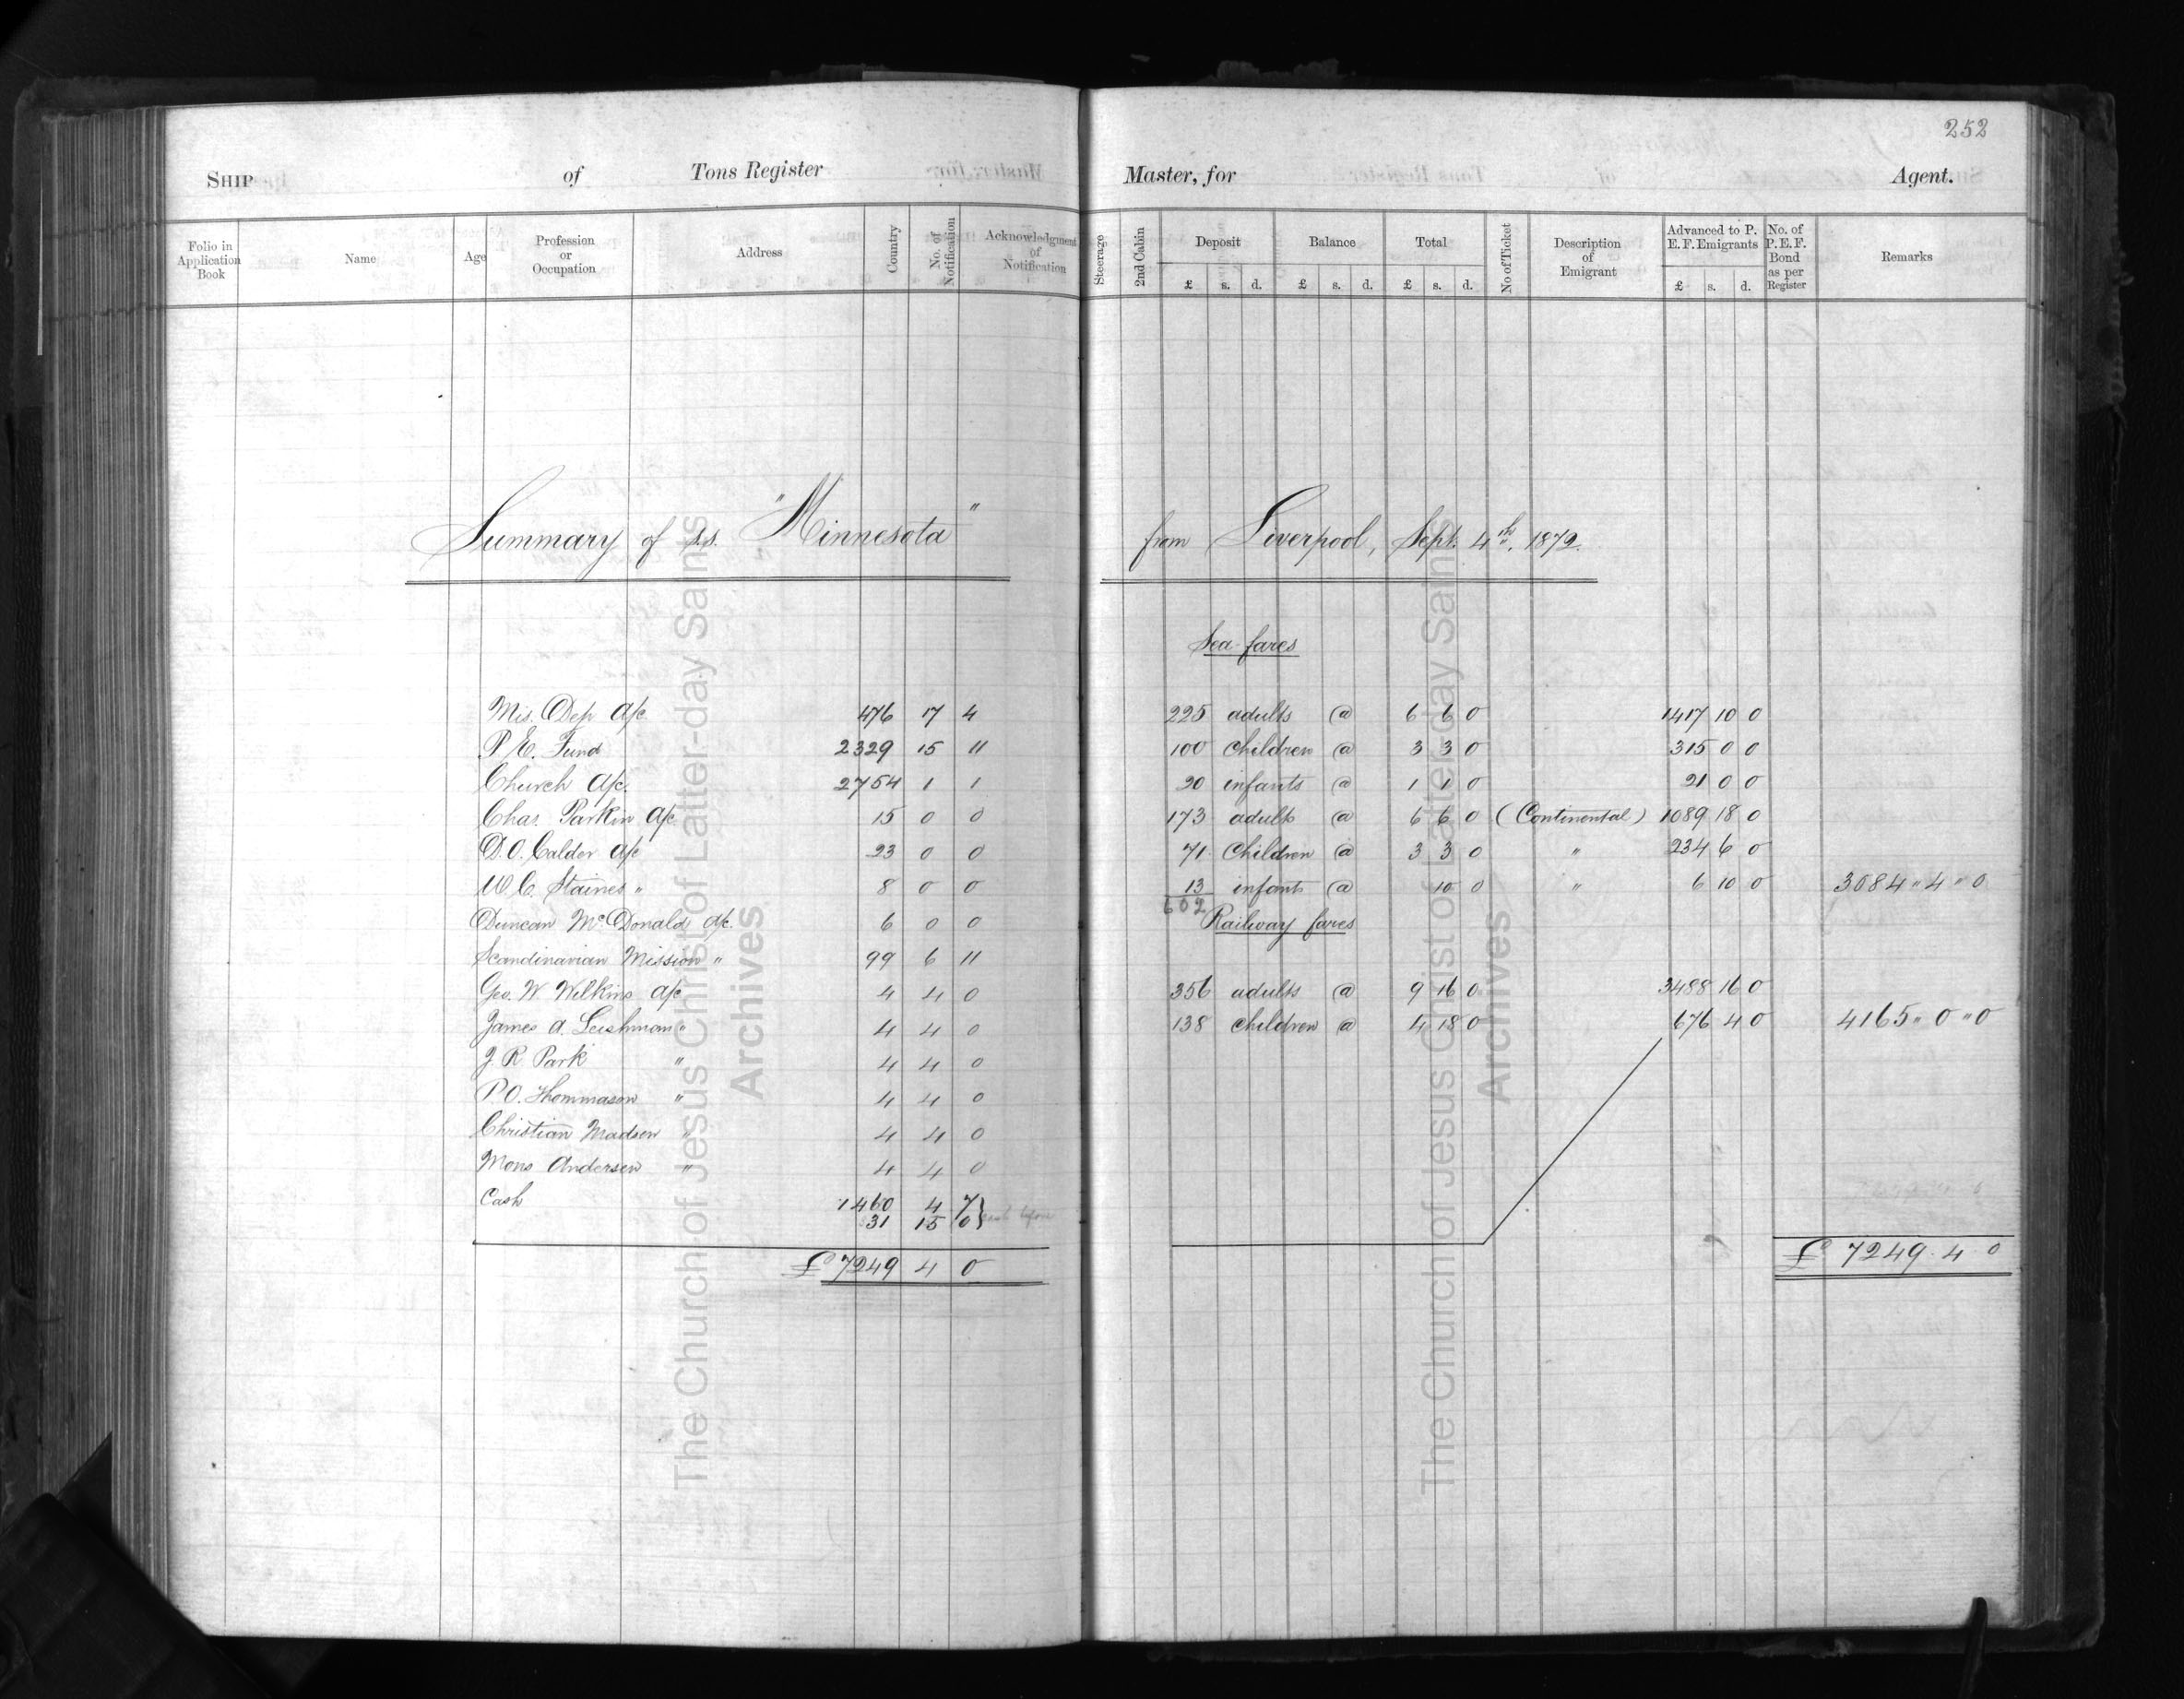 252
SHIP of Tons Register Master, for Agent.
Folio in Application Book
Name
Age
Profession or Occupation
Address
Country
No. of Notification
Acknowledgment of Notification
Steerage
2nd Cabin
Deposit £ s. d.
Balance £ s. d.
Total £ s. d.
No of Ticket
Description of Emigrant
Advanced to P. E. F. Emigrants £ s. d.
No. of P. E. F. Bond as per Register
Remarks
Summary of s.s. "Minnesota" from Liverpool, Sept. 4th, 1872.
Mis. Dep a/c 476 17 4
P. E. Fund 2329 15 11
Church a/c. 2754 1 1
Chas. Parkin a/c 15 0 0
D. O. Calder a/c 23 0 0
W. C. Staines " 8 0 0
Duncan McDonald a/c. 6 0 0
Scandinavian Mission " 99 6 11
Geo. W Wilkins a/c 4 4 0
James A. Leishman " 4 4 0
J. R Park " 4 4 0
P. O. Thommason " 4 4 0
Christian Madsen " 4 4 0
Mons Andersen " 4 4 0
Cash 1460 4 7}
31 15 0}
£ 7249 4 0
Sea fares
225 adults @ 6 6 0 1417 10 0
100 children @ 3 3 0 315 0 0
20 infants @ 1 1 0 21 0 0
173 adults @ 6 6 0 (Continental) 1089 18 0
71 Children @ 3 3 0 " 234 6 0
13 infants @ 10 0 " 6 10 0 3084 " 4 " 0
602
Railway fares
356 adults @ 9 16 0 3488 16 0
138 children @ 4 18 0 676 4 0 4165 " 0 " 0
£ 7249 . 4 0
The Church of Jesus Christ of Latter-day Saints
Archives
The Church of Jesus Christ of Latter-day Saints
Archives